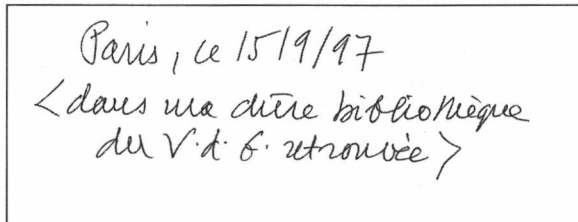 Paris, ce 15/9/97
<dans ma chère bibliothèque
du V. d. G. retrouvée>